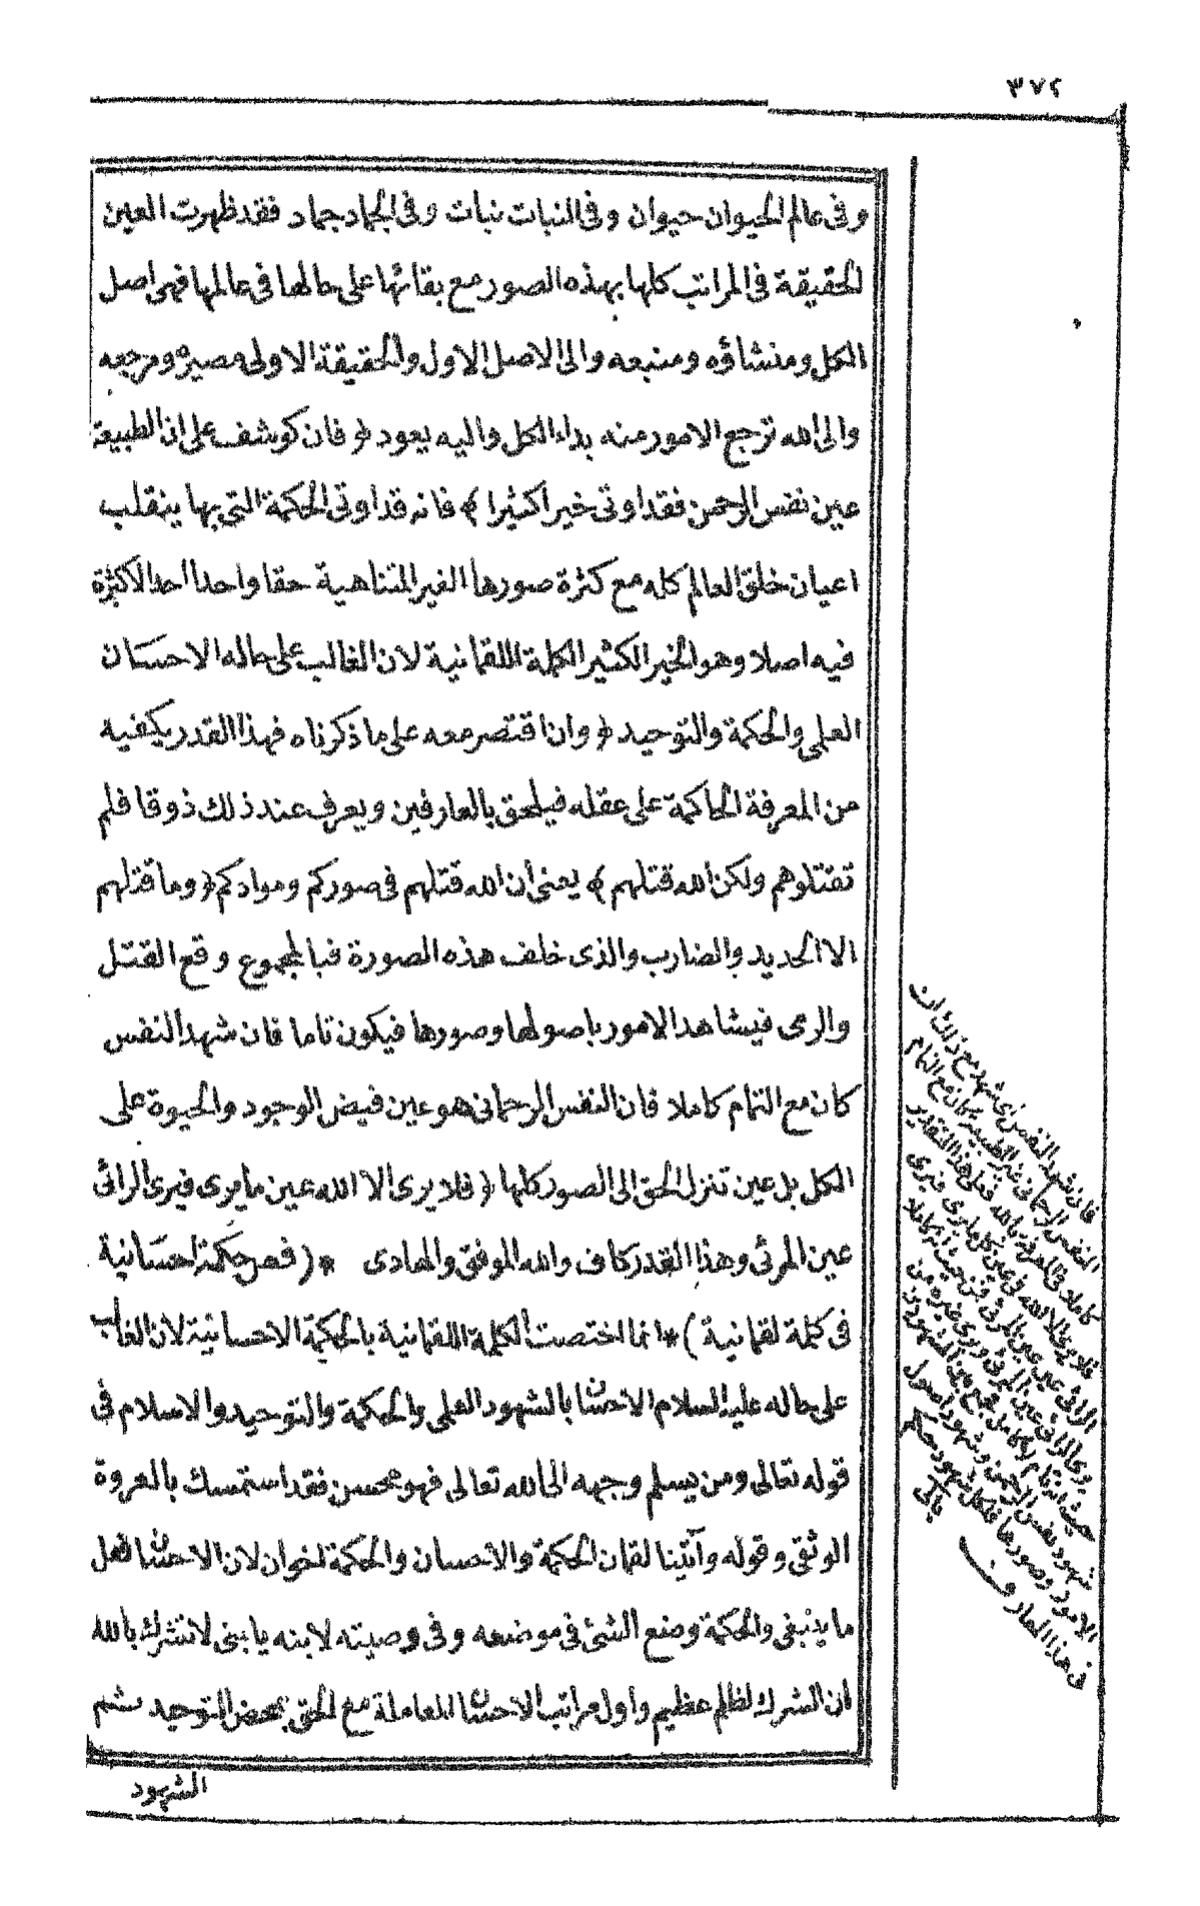 ٣٧٢
وفى عالم الحيوان حيوان وفى النبات نبات وفى الجماد جماد فقد ظهرت العين
الحقيقة فى المراتب كلها بهذه الصور مع بقائها على حالها فى عالمها فهى اصل
الكل ومنشاؤه ومنبعه والى الاصل الاول والحقيقة الاولى مصيره ومرجعه
والى الله ترجع الامور منه بداء الكل واليه يعود ﴿ فان كوشف على ان الطبيعة
عين نفس الرحمن فقد اوتى خيرا كثيرا ﴾ فانه قد اوتى الحكمة التى بها ينقلب
اعيان خلق العالم كله مع كثرة صورها الغير المتناهية حقا واحدا احد الاكثرة
فيه اصلا وهو الخير الكثير الكلمة اللقمانية لان الغالب على حاله الاحسان
العلمى والحكمة والتوحيد ﴿ وان اقتصر معه على ما ذكرناه فهذا القدر يكفيه
من المعرفة الحاكمة على عقله فيلحق بالعارفين ويعرف عند ذلك ذوقا فلم
تقتلوهم ولكن الله قتلهم ﴾ يعنى ان الله قتلهم فى صوركم وموادكم ﴿ وما قتلهم
الا الحديد والضارب والذى خلف هذه الصورة فبالمجموع وقع القتل
والرمى فيشاهد الامور باصولها وصورها فيكون تاما فان شهد النفس
كان مع التمام كاملا فان النفس الرحمانى هو عين فيض الوجود والحيوة على
الكل بل عين تنزل الحق الى الصور كلها ﴿ فلا يرى الا الله عين ما يرى فيرى الرائى
عين المرئى وهذا القدر كاف والله الموفق والهادى * ( فص حكمة احسانية
فى كلمة لقمانية ) * انما اختصت الكلمة اللقمانية بالحكمة الاحسانية لان الغالب
على حاله عليه السلام الاحسان بالشهود العلمى والحكمة والتوحيد والاسلام فى
قوله تعالى ومن يسلم وجهه الى الله تعالى فهو محسن فقد استمسك بالعروة
الوثقى وقوله وآتينا لقمان الحكمة والاحسان والحكمة اخوان لان الاحسان فعل
ما ينبغى والحكمة وضع الشئ فى موضعه وفى وصيته لابنه يا بنى لا تشرك بالله
ان الشرك لظلم عظيم واول مراتب الاحسان المعاملة مع الحق بمحض التوحيد ثم
الشهود
فان شهد النفس اى شهد مع ذلك ان
النفس الرحمانى عين الطبيعة كان مع التمام
كاملا فى المعرفة بالله فعلى هذا التقدير
فلا يرى الا الله فى عين كل ما يرى فيرى
الرائى عين المرئى فمن حيث انه كاملا
يرى الرائى عين المرئى ويرى غيره من
حيث انه تام
شهود نفس الرحمن وشهود اصول
الامور وصورها فلكل شهود حكم
فى هذا العارف
بالى